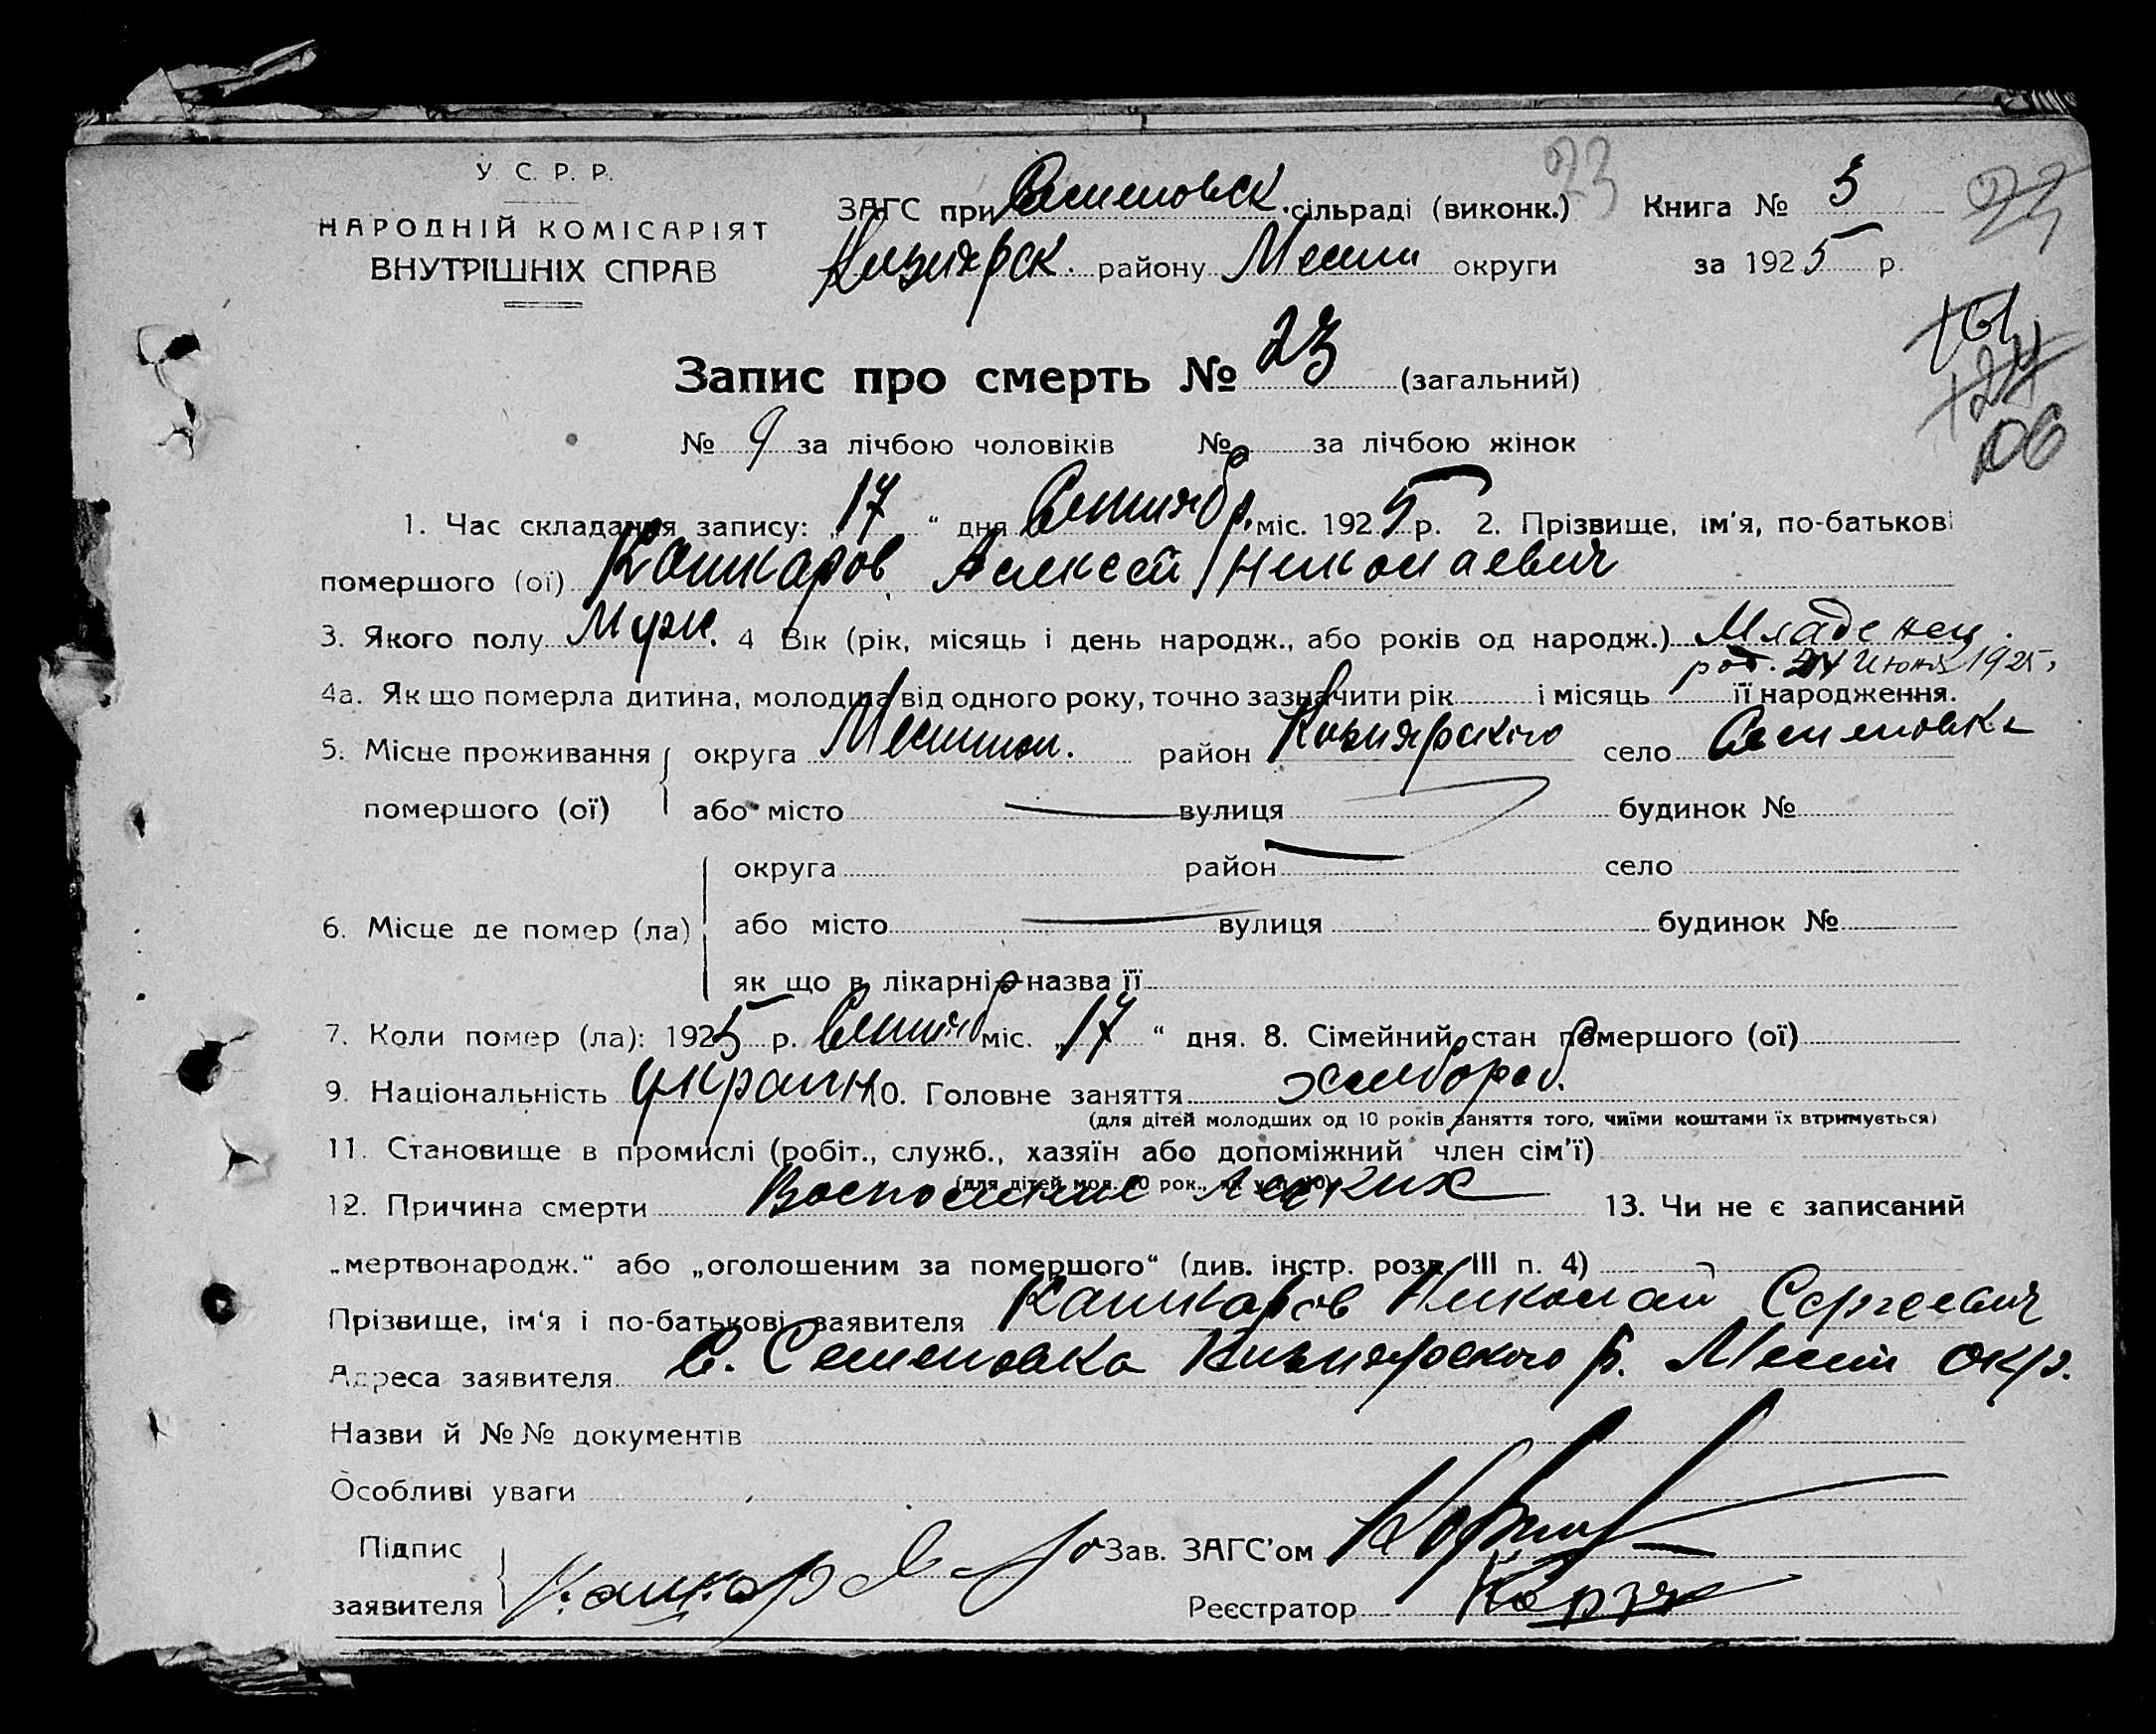 У. С. Р. Р.
НАРОДНІЙ КОМІСАРІЯТ
ВНУТРІШНІХ СПРАВ
23
ЗАГС при Семеновск. сільраді (виконк.) Книга № 3
Кизиярск. району Мелит округи за 1925 р.
Запис про смерть № 23 (загальний)
№ 9 за лічбою чоловіків № за лічбою жінок
1. Час складання запису: „17“ дня Сентябр. міс. 1925 р. 2. Прізвище, ім’я, по-батькові
помершого (ої) Кашкаров Алексей Николаевич
3. Якого полу Муж. 4 Вік (рік, місяць і день народж., або років од народж.) Младенец.
род. 24 июня 1925,
4а. Як що померла дитина, молодша від одного року, точно зазначити рік і місяць її народження.
5. Місце проживання округа Мелитоп. район Кизиярского село Семеновка
помершого (ої) або місто вулиця будинок №
округа район село
6. Місце де помер (ла) або місто вулиця будинок №
як що в лікарні назва її
7. Коли помер (ла): 1925 р. Сентяб міс. „17“ дня. 8. Сімейний стан помершого (ої)
9. Національність украин 10. Головне заняття хлебороб.
(для дітей молодших од 10 років заняття того, чиїми коштами їх втримується)
11. Становище в промислі (робіт., служб., хазяїн або допоміжний член сім’ї)
(для дітей мол. 10 рок.,
12. Причина смерти Восполение легких 13. Чи не є записаний
„мертвонародж.“ або „оголошеним за помершого“ (див. інстр. розд. III п. 4)
Прізвище, ім‘я і по-батькові заявителя Кашкаров Николай Сергеевич
Адреса заявителя С. Семеновка Кизиярского р. Мелит окр.
Назви й №№ документів
Особливі уваги
Підпис Зав. ЗАГС’ом
заявителя Кашкаров Реєстратор